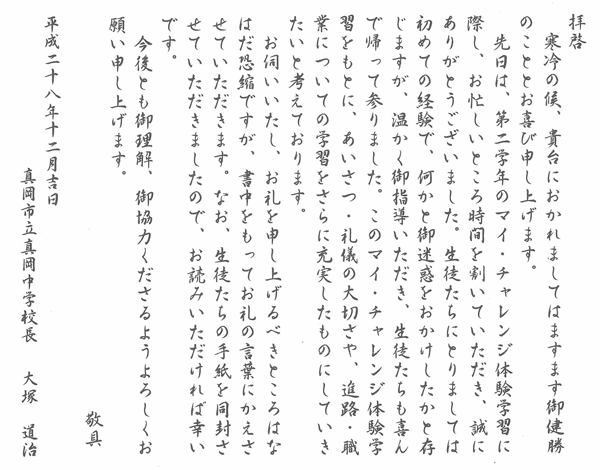 拝啓
寒冷の候、貴台におかれましてはますます御健勝
のこととお喜び申し上げます。
先日は、第二学年のマイ・チャレンジ体験学習に
際し、お忙しいところ時間を割いていただき、誠に
ありがとうございました。生徒たちにとりましては
初めての経験で、何かと御迷惑をおかけしたかと存
じますが、温かく御指導いただき、生徒たちも喜ん
で帰って参りました。このマイ・チャレンジ体験学
習をもとに、あいさつ・礼儀の大切さや、進路・職
業についての学習をさらに充実したものにしていき
たいと考えております。
お伺いいたし、お礼を申し上げるべきところはな
はだ恐縮ですが、書中をもってお礼の言葉にかえさ
せていただきます。なお、生徒たちの手紙を同封さ
せていただきましたので、お読みいただければ幸い
です。
今後とも御理解、御協力くださるようよろしくお
願い申し上げます。
敬具
平成二十八年十二月吉日
真岡市立真岡中学校長 大塚 道治